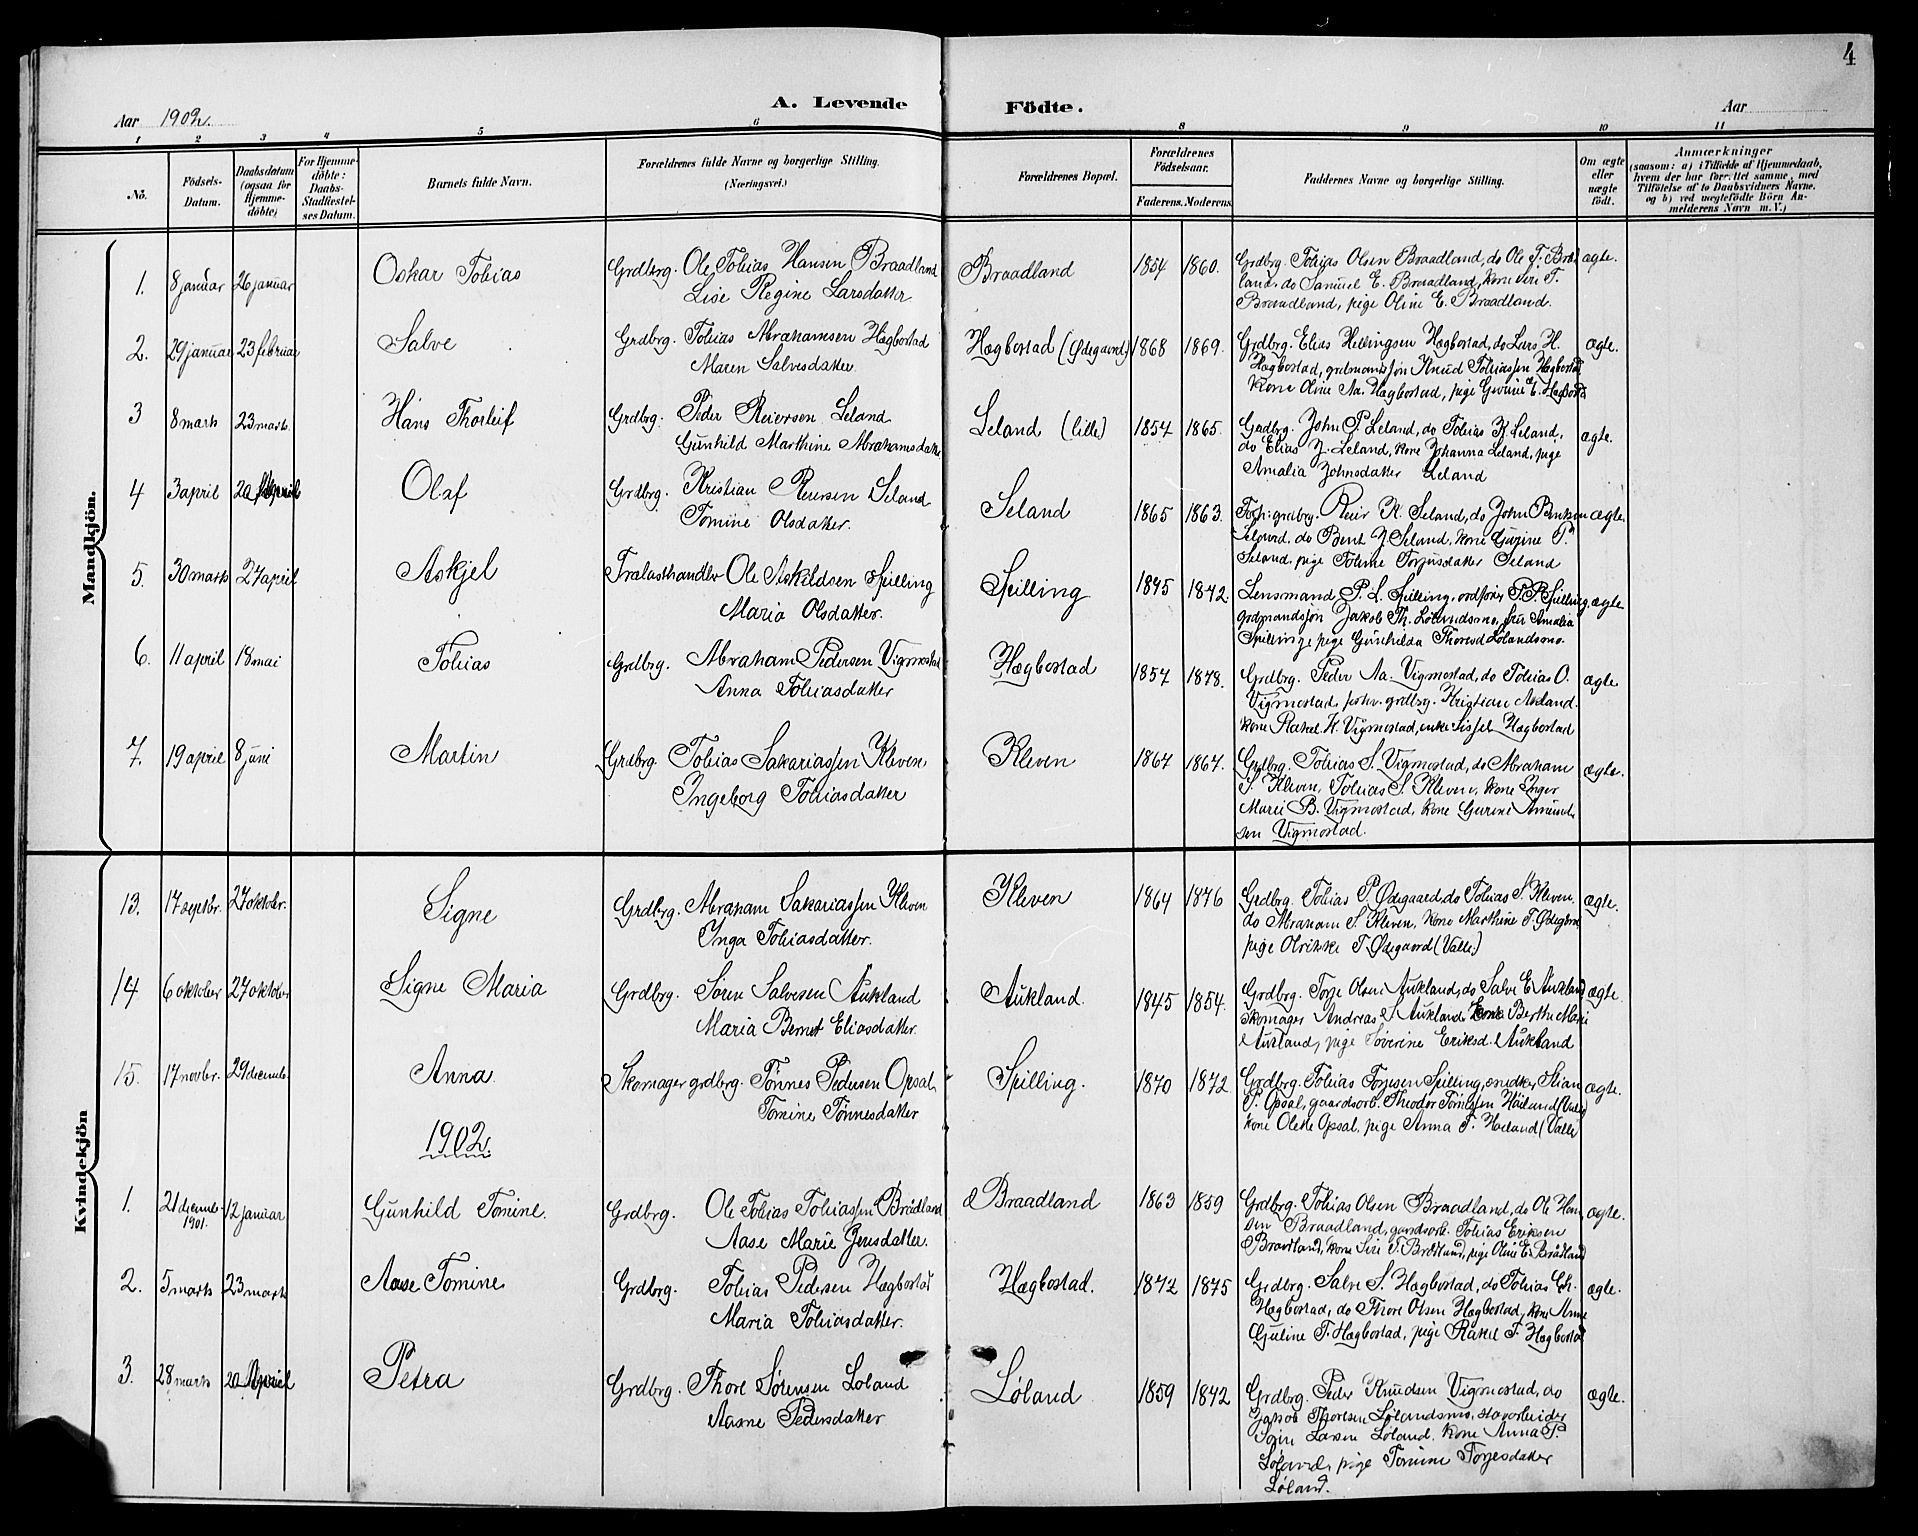 4
Aar 1902.
A. Levende Födte.
Aar
1 2 3 4 5 6 8 9 10 11
No.
Födsels-Datum.
Daabsdatum (ogsaa for Hjemme-döbte)
For Hjemme-döbte: Daabs-Stadfæstel-ses Datum.
Barnets fulde Navn.
Forældrenes fulde Navne og borgerlige Stilling.
(Næringsvei.)
Forældrenes Bopæl.
Forældrenes Födselsaar.
Faderens. Moderens.
Faddernes Navne og borgerlige Stilling.
Om ægte eller uægte födt.
Anmærkninger
(saasom: a) i Tilfælde af Hjemmedaab,
hvem der har forrettet samme, med
Tilföielse af to Daabsvidners Navne,
og b) ved uægtefödte Börn An-
melderens Navn m. V.)
Mandkjön.
1. 8 januar 26 januar Oskar Tobias Grdbrg. Ole Tobias Hansen Braadland
Lise Regine Larsdatter
Braadland 1854 1860.
Grdbrg. Tobias Olsen Braadland, do Ole T. Braad
land, do Samuel E. Braadland, kone Siri T.
Braadland, pige Oline E. Braadland.
ægte.
2. 29 januar 23 februar Salve Grdbrg. Tobias Abrahamsen Hægbostad
Maren Salvesdatter.
Hægbostad (Ødegaard) 1868 1869.
Grdbrg. Elias Hellingsen Hægbostad, do Lars H.
Hægbostad, grdmandssøn Knud Tobiassen Hægbostad
kone Oline Aa. Hægbostad, pige Gurine E. Hægbostad
ægte.
3 8 marts 23 marts. Hans Thorleif Grdbrg. Peder Reiersen Leland
Gunhild Marthine Abrahamsdatter
Leland (lille) 1854 1865.
Grdbrg. John P. Leland, do Tobias K. Leland,
do Elias J. Leland, kone Johanna Leland, pige
Amalia Johnsdatter Leland
ægte.
4 3 april 20 April Olaf Grdbrg. Kristian Reiersen Seland
Tomine Olsdatter.
Seland 1865 1863.
Forh: grdbrg. Reier K. Seland, do John Bentsen
Seland, do Bent J. Seland, kone Gurine P.
Seland, pige Tomine Torjusdatter Seland
ægte.
5. 30 marts 27 april Askjel Trælasthandler Ole Askildsen Spilling
Maria Olsdatter.
Spilling 1845 1842
Lensmand P. L. Spilling, ordfører P. P. Spilling,
grdmandssøn Jakob Th. Lølandsmo, fru Amalia
Spilling, pige Gunhilda Thoresd Lølandsmo.
ægte
6. 11 april 18 mai Tobias Grdbrg. Abraham Pedersen Vigmostad
Anna Tobiasdatter
Hægbostad 1857 1878.
Grdbrg. Peder Aa. Vigmostad, do Tobias O.
Vigmostad, grdbrg. Kristian Aasland.
kone Rakel K. Vigmostad, enke Sissel Hægbostad
ægte
7. 19 april 8 juni Martin Grdbrg. Tobias Sakariassen Kleven
Ingeborg Tobiasdatter
Kleven 1867 1867.
Grdbrg. Tobias S. Vigmostad, do Abraham
S. Kleven, Tobias S. Kleven, kone Inger
Marie B. Vigmostad, kone Gurine Amund-
sen Vigmostad.
ægte.
Kvindekjön
13. 17 septbr. 27 oktober. Signe Grdbrg. Abraham Sakariassen Kleven
Inga Tobiasdatter.
Kleven 1864 1876
Grdbrg. Tobias P. Ødegaard, do Tobias S. Kleven,
do Abraham S. Kleven, kone Marthine T. Ødegaard
pige Olrikke T. Ødegaard (Valle)
ægte.
14 6 oktober 27 oktober Signe Maria Grdbrg. Søren Salvesen Aukland
Maria Bernt Eliasdatter.
Aukland. 1845 1854.
Grdbrg. Torje Olsen Aukland, do Salve E Aukland
skomager Andreas S Aukland kone Berthe Marie
Aukland, pige Søverine Eriksd. Aukland
ægte.
15. 17 novbr. 29 decemb. Anna Skomager grdbrg. Tønnes Pedersen Opsal,
Tomine Tønnesdatter
Spilling. 1870 1872
Grdbrg. Tobias Torjesen Spilling, snedker Stian
P. Opsal, gaardsarb. Theodor Tomassen Høiland (Valle)
kone Olette Opsal, pige Anna T. Høiland (Valle
ægte.
1902.
1. 21 decemb. 1901. 12 januar Gunhild Tomine. Grdbrg. Ole Tobias Tobiassen Brådland
Aase Marie Jensdatter.
Braadland 1863 1859
Grdbrg. Tobias Olsen Braadland, do Ole Han
sen Braadland, gaardsarb. Tobias Eriksen
Braadland, kone Siri T. Brådland, pige Oline E. Brådland
ægte.
2. 5 marts 23 marts Aase Tomine Grdbrg. Tobias Pedersen Hægbostad
Maria Tobiasdatter.
Hægbostad. 1872 1875
Grdbrg. Salve S. Hægbostad, do Tobias Ch.
Hægbostad, do Thore Olsen Hægbostad, kone Anne
Guline T. Hægbostad, pige Rakel T. Hægbostad
ægte.
3. 28 marts 20 April Petra Grdbrg. Thore Sørensen Løland
Aasne Pedersdatter
Løland 1859 1842
Grdbrg. Peder Knudsen Vigmostad, do
Jakob Thoresen Lølandsmo, stavarbeider
Larsen Løland, kone Anna P.
Løland, pige Tomine Torjesdatter
Løland.
ægte.